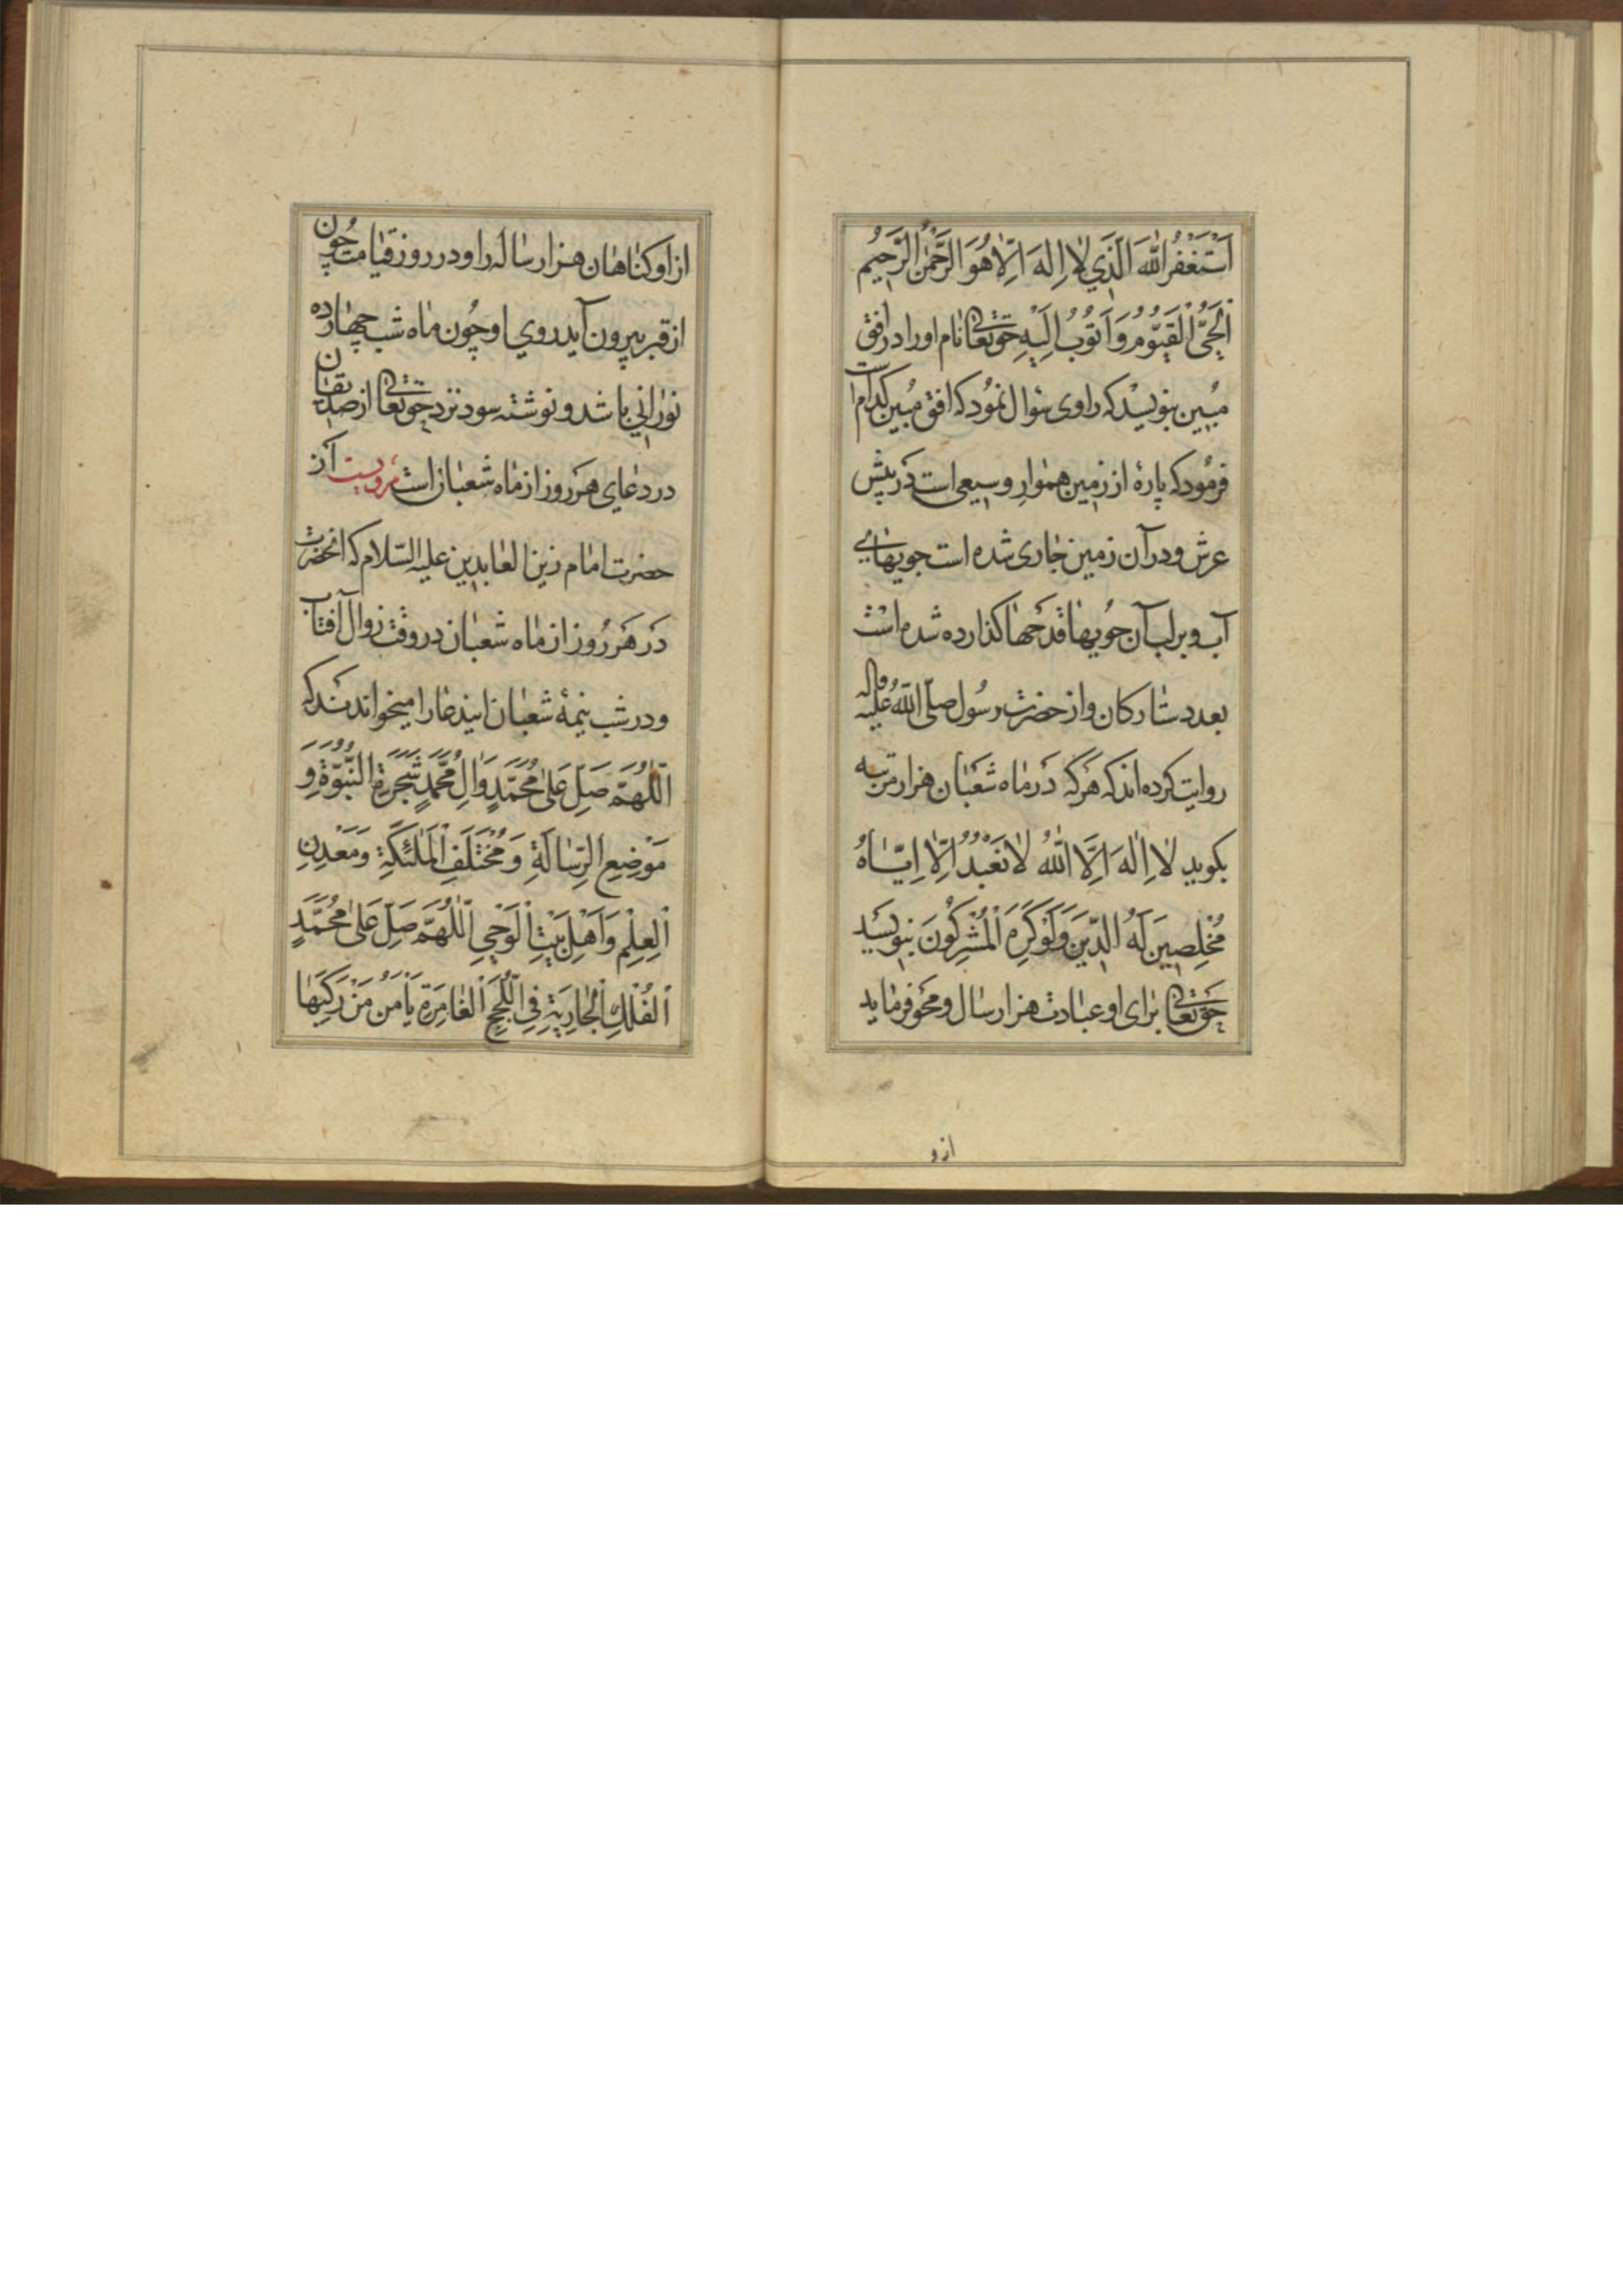 اَسْتَغْفِرُ اللهَ الَّذِي لٰا اِلٰهَ اِلّٰا هُوَ الرَّحْمٰنُ الرَّحِيمُ
اَلْحَىُّ الْقَيُّومُ وَ اَتُوبُ اِلَيْهِ حق تعالی نام او را در افق
مُبین بنویسد که راوی سئوال نمود که افق مُبین کدام است
فرمُود که پارهٔ از زمین هموار وسیعی است در پیش
عرش و در آن زمین جاری شده است جویهایی
آب و بر لب آن جُویها قدحها گذارده شده است
بعدد ستارگان و از حضرت رسُول صلّی اللّهُ علیه واله
روایت کرده اند که هرکه در ماه شعبان هزار مرتبه
بگوید لٰا اِلٰهَ اِلَّا اللّٰهُ لٰا نَعْبُدُ اِلّٰا اِيّٰاهُ
مُخْلِصِينَ لَهُ الدِّينَ وَلَوْ كَرِهَ الْمُشْرِكُونَ بنویسد
حق تعالی برای او عبادت هزار سال و محو فرماید
ازو
از او کناهان هزار ساله را و در روز قیامت چُون
از قبر بیرون آید روی او چُون ماه شب چهارده
نورانی باشد و نوشته سود نزد حق تعالی از صدیقان
در دعای هر روز از ماه شعبان است مرویست از
حضرت امام زین العابدین علیه السّلام که انحضرت
در هر روز از ماه شعبان در وقت زوال آفتاب
و در شب نیمهٔ شعبان ایندعا را میخواندند که
اَللّٰهُمَّ صَلِّ عَلىٰ مُحَمَّدٍ وَ اٰلِ مُحَمَّدٍ شَجَرَةِ النُّبُوَّةِ وَ
مَوْضِعِ الرِّسٰالَةِ وَ مُخْتَلَفِ الْمَلٰئِكَةِ وَ مَعْدِنِ
الْعِلْمِ وَ اَهْلِ بَيْتِ الْوَحْيِ اَللّٰهُمَّ صَلِّ عَلىٰ مُحَمَّدٍ
الْفُلْكِ الْجٰارِيَةِ فِي اللُّجَجِ الْغٰامِرَةِ يَأْمَنُ مَنْ رَكِبَهٰا